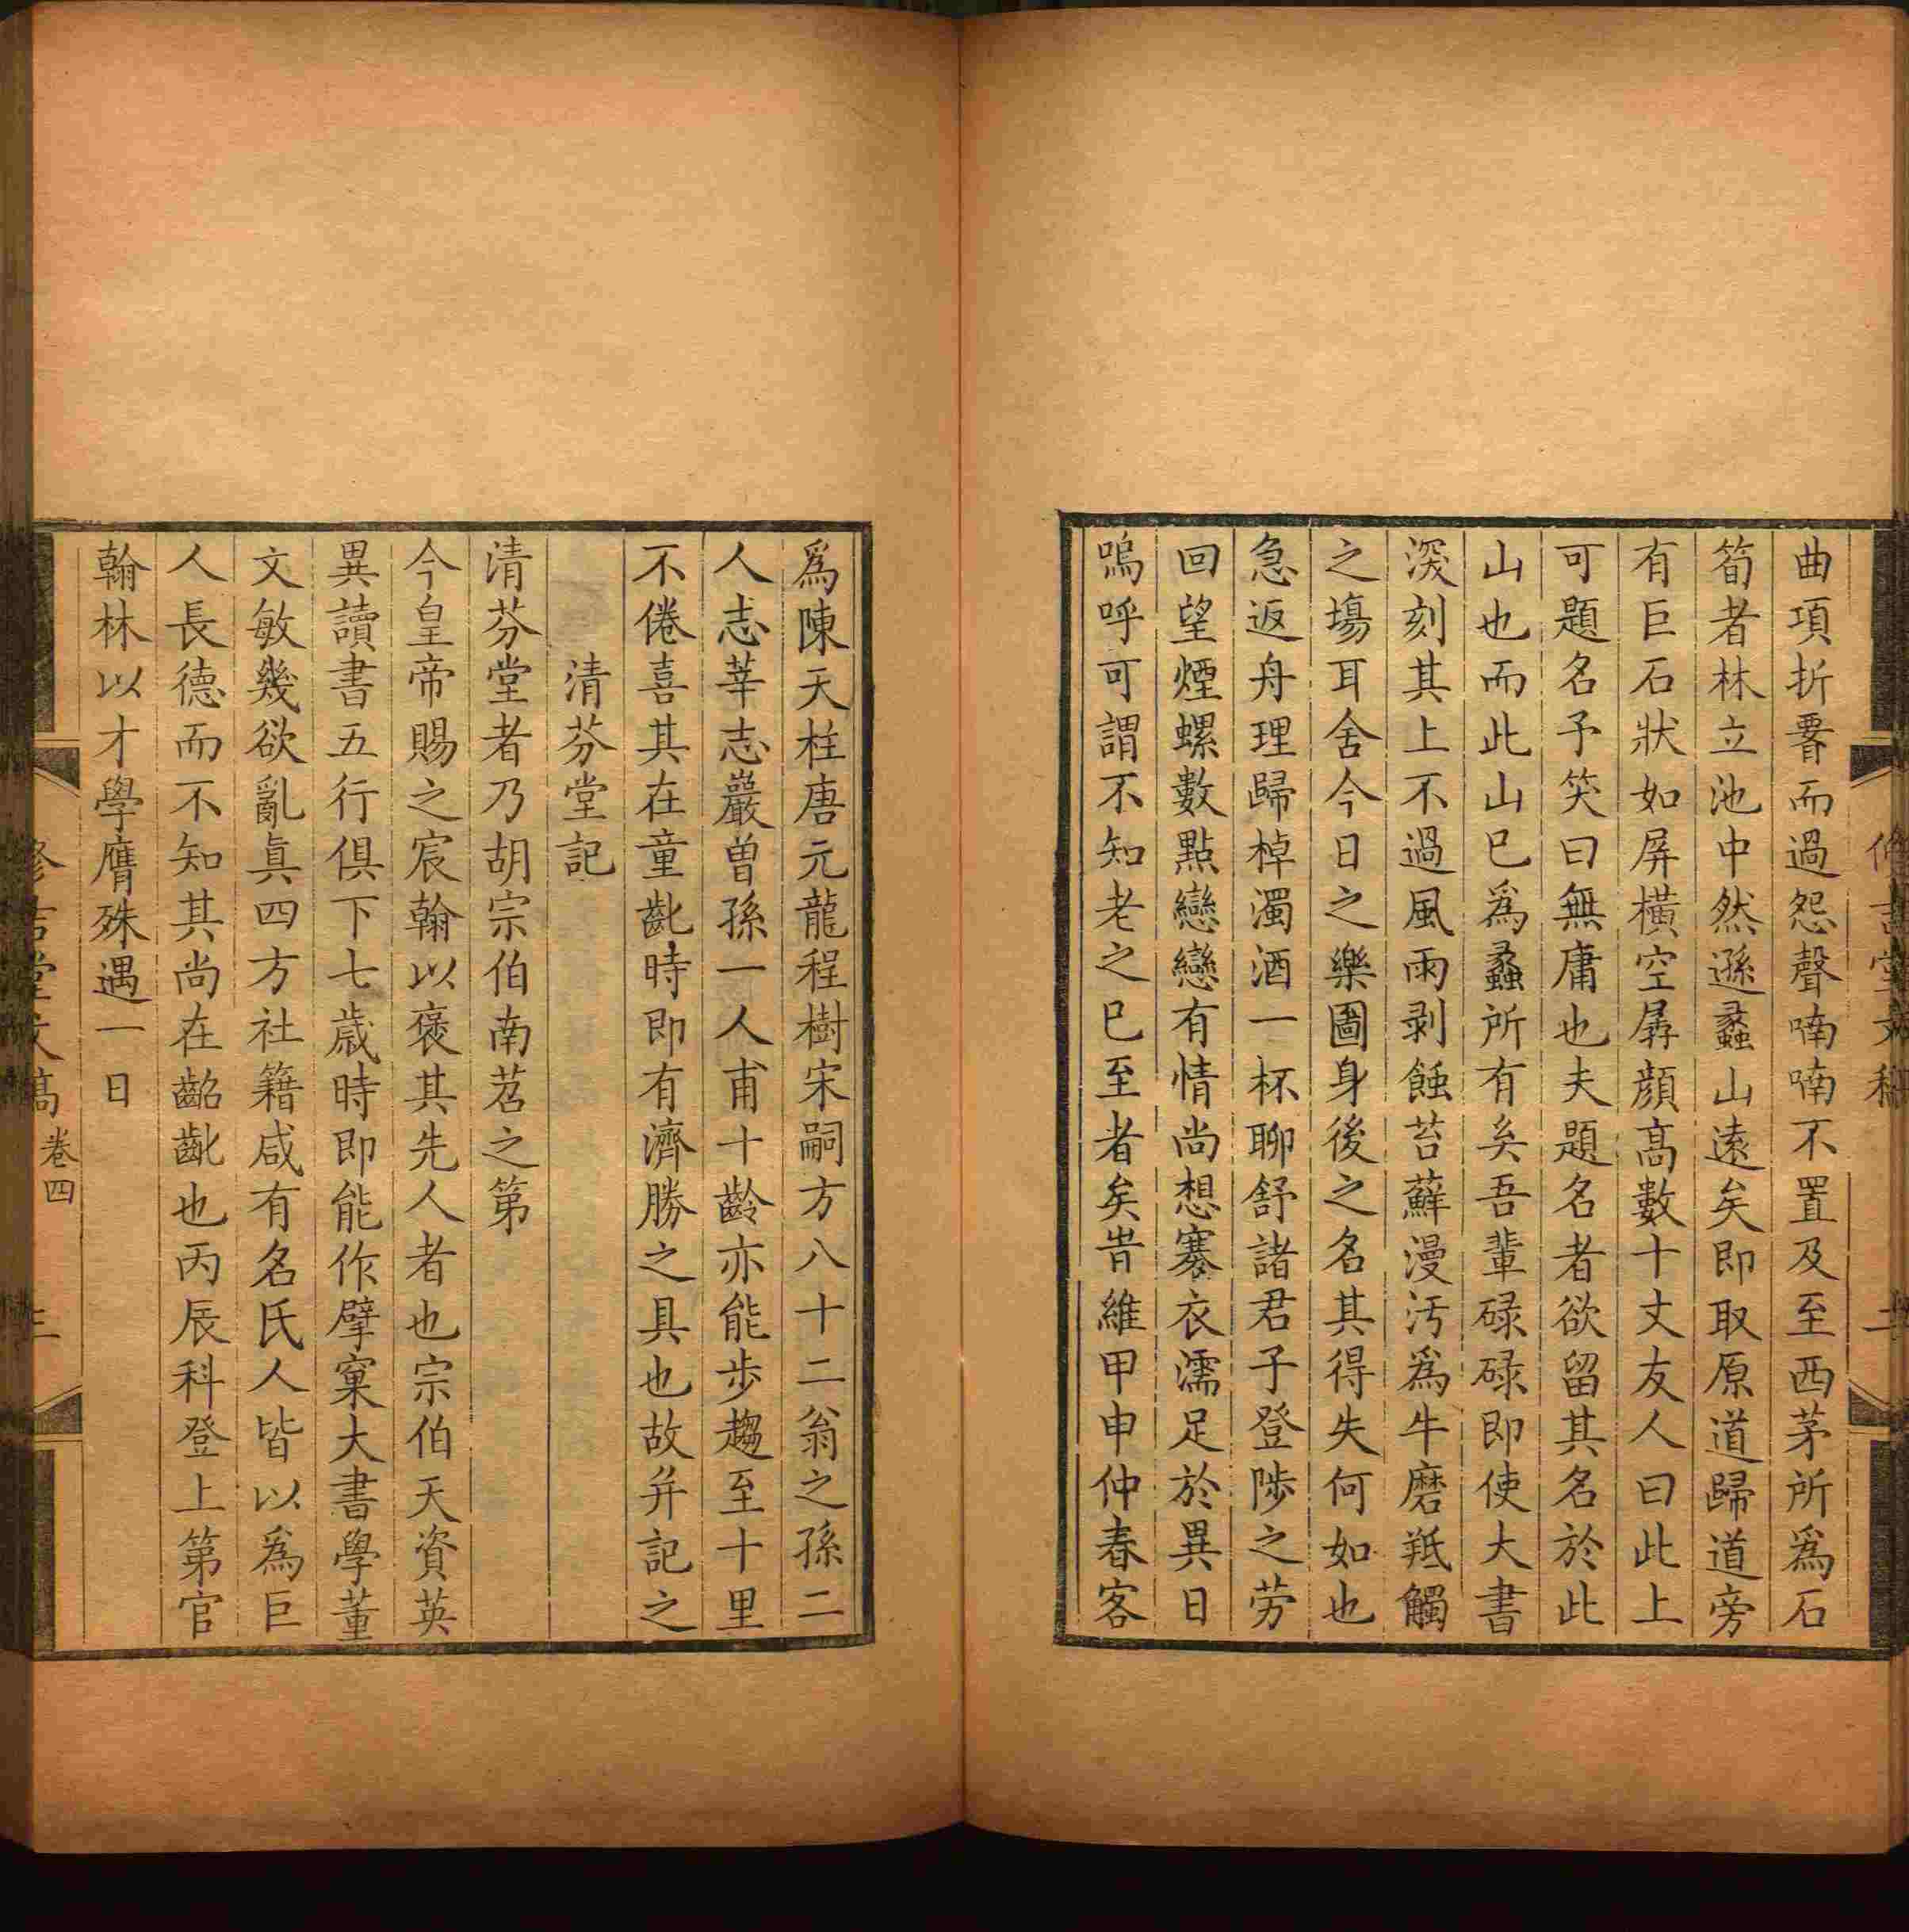 曲項折醫而過怨聲喃喃不置及至西茅所爲石
筍者林立池中然遜蠡山遠矣即取原道歸道旁
有巨石狀如屏橫空孱顔髙數十丈友人曰此上
可題名予笑曰無庸也夫題名者欲留其名於此
山也而此山巳爲蠡所有矣吾輩碌碌即使大書
深刻其上不過風雨剥蝕苔蘚漫汚爲牛磨羝觸
之塲耳舍今日之樂圖身後之名其得失何如也
急返舟理歸棹濁酒一杯聊舒諸君子登陟之劳
回望煙螺數點戀戀有情尚想褰衣濡足於異日
嗚呼可謂不知老之巳至者矣旹維甲申仲春客
爲陳天柱唐元龍程樹宋嗣方八十二翁之孫二
人志莘志巖曾孫一人甫十齡亦能步趨至十里
不倦喜其在童齔時即有濟勝之具也故并記之
清芬堂記
清芬堂者乃胡宗伯南苕之第
今皇帝賜之宸翰以褒其先人者也宗伯天資英
異讀書五行俱下七歲時即能作擘窠大書學董
文敏幾欲亂眞四方社籍咸有名氏人皆以爲巨
人長德而不知其尚在齠齔也丙辰科登上第官
翰林以才學膺殊遇一日
修吉堂文稿 卷四 三